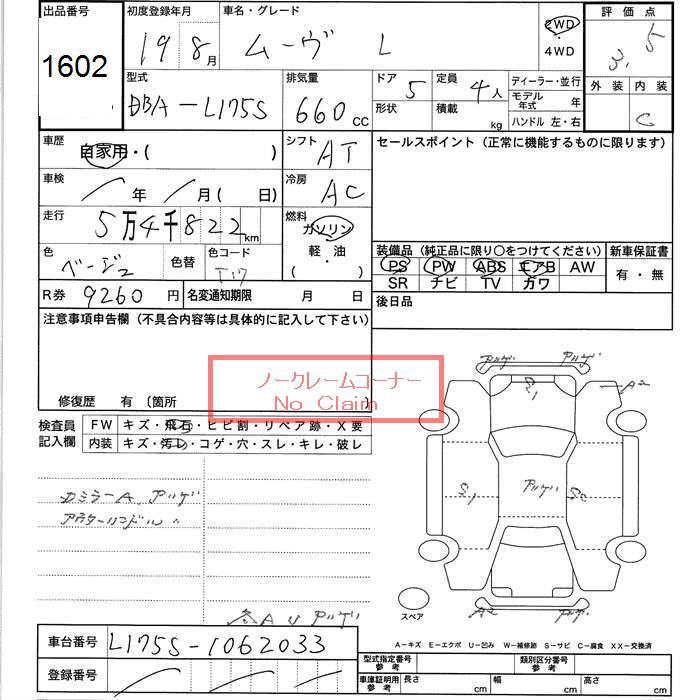 出品番号 初度登録年月 車名・グレード 2WD ・ 4WD 評価点
1602 19 8月 ムーヴ L 3.5
型式 排気量 ドア 5 定員 4人 ディーラー・並行 外装 内装
DBA-L175S 660cc 形状 積載 kg モデル年式 年 C
ハンドル 左・右
車歴 自家用・( ) シフト AT セールスポイント(正常に機能するものに限ります)
車検 年 月( 日) 冷房 AC
走行 5万4千822km 燃料 ガソリン
軽・油
( )
色 ベージュ 色替 色コード T17 装備品(純正品に限り〇をつけてください) 新車保証書
PS PW ABS エアB AW 有・無
SR ナビ TV カワ
R券 9260円 名変通知期限 月 日 後日品
注意事項申告欄(不具合内容等は具体的に記入して下さい)
ノークレームコーナー
No Claim
修復歴 有 (箇所 )
検査員記入欄 FW キズ・飛石・ヒビ割・リペア跡・X要
内装 キズ・汚レ・コゲ・穴・スレ・キレ・破レ
アツゲ アツゲ
S1 A2
S1 アツゲ S2
カミラーA アツゲ
アウターハンドル 〃
スペア A2 アツゲ
各AU アツゲ
A-キズ E-エクボ U-凹み W-補修跡 S-サビ C-腐食 XX-交換済
車台番号 L175S-1062033
型式指定番号 参考 類別区分番号 参考
登録番号
車庫証明用 参考 長さ cm 幅 cm 高さ cm